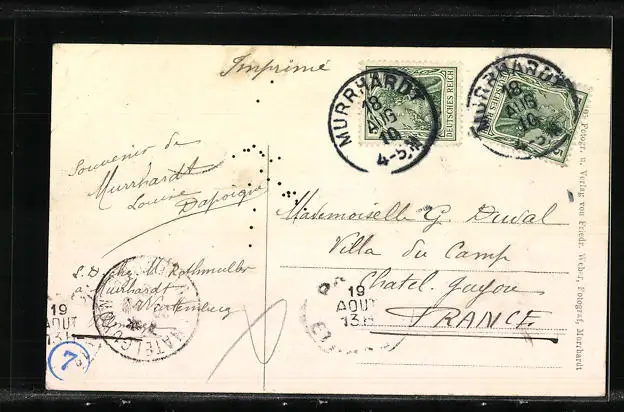 Imprimé
MURRHARDT
18
AUG
10
4-5N
DEUTSCHES REICH
MURRHARDT
18
AUG
10
4-5
Souvenir de
Murrhardt
Louise
Mademoiselle G. Duval
Villa du Camp
Chatel-Guyon
FRANCE
Rothmuller
a Murrhardt
Wurtemberg
19
AOUT
13H
19
AOUT
13H
7
Fotogr. u. Verlag von Friedr. Weber, Fotograf, Murrhardt